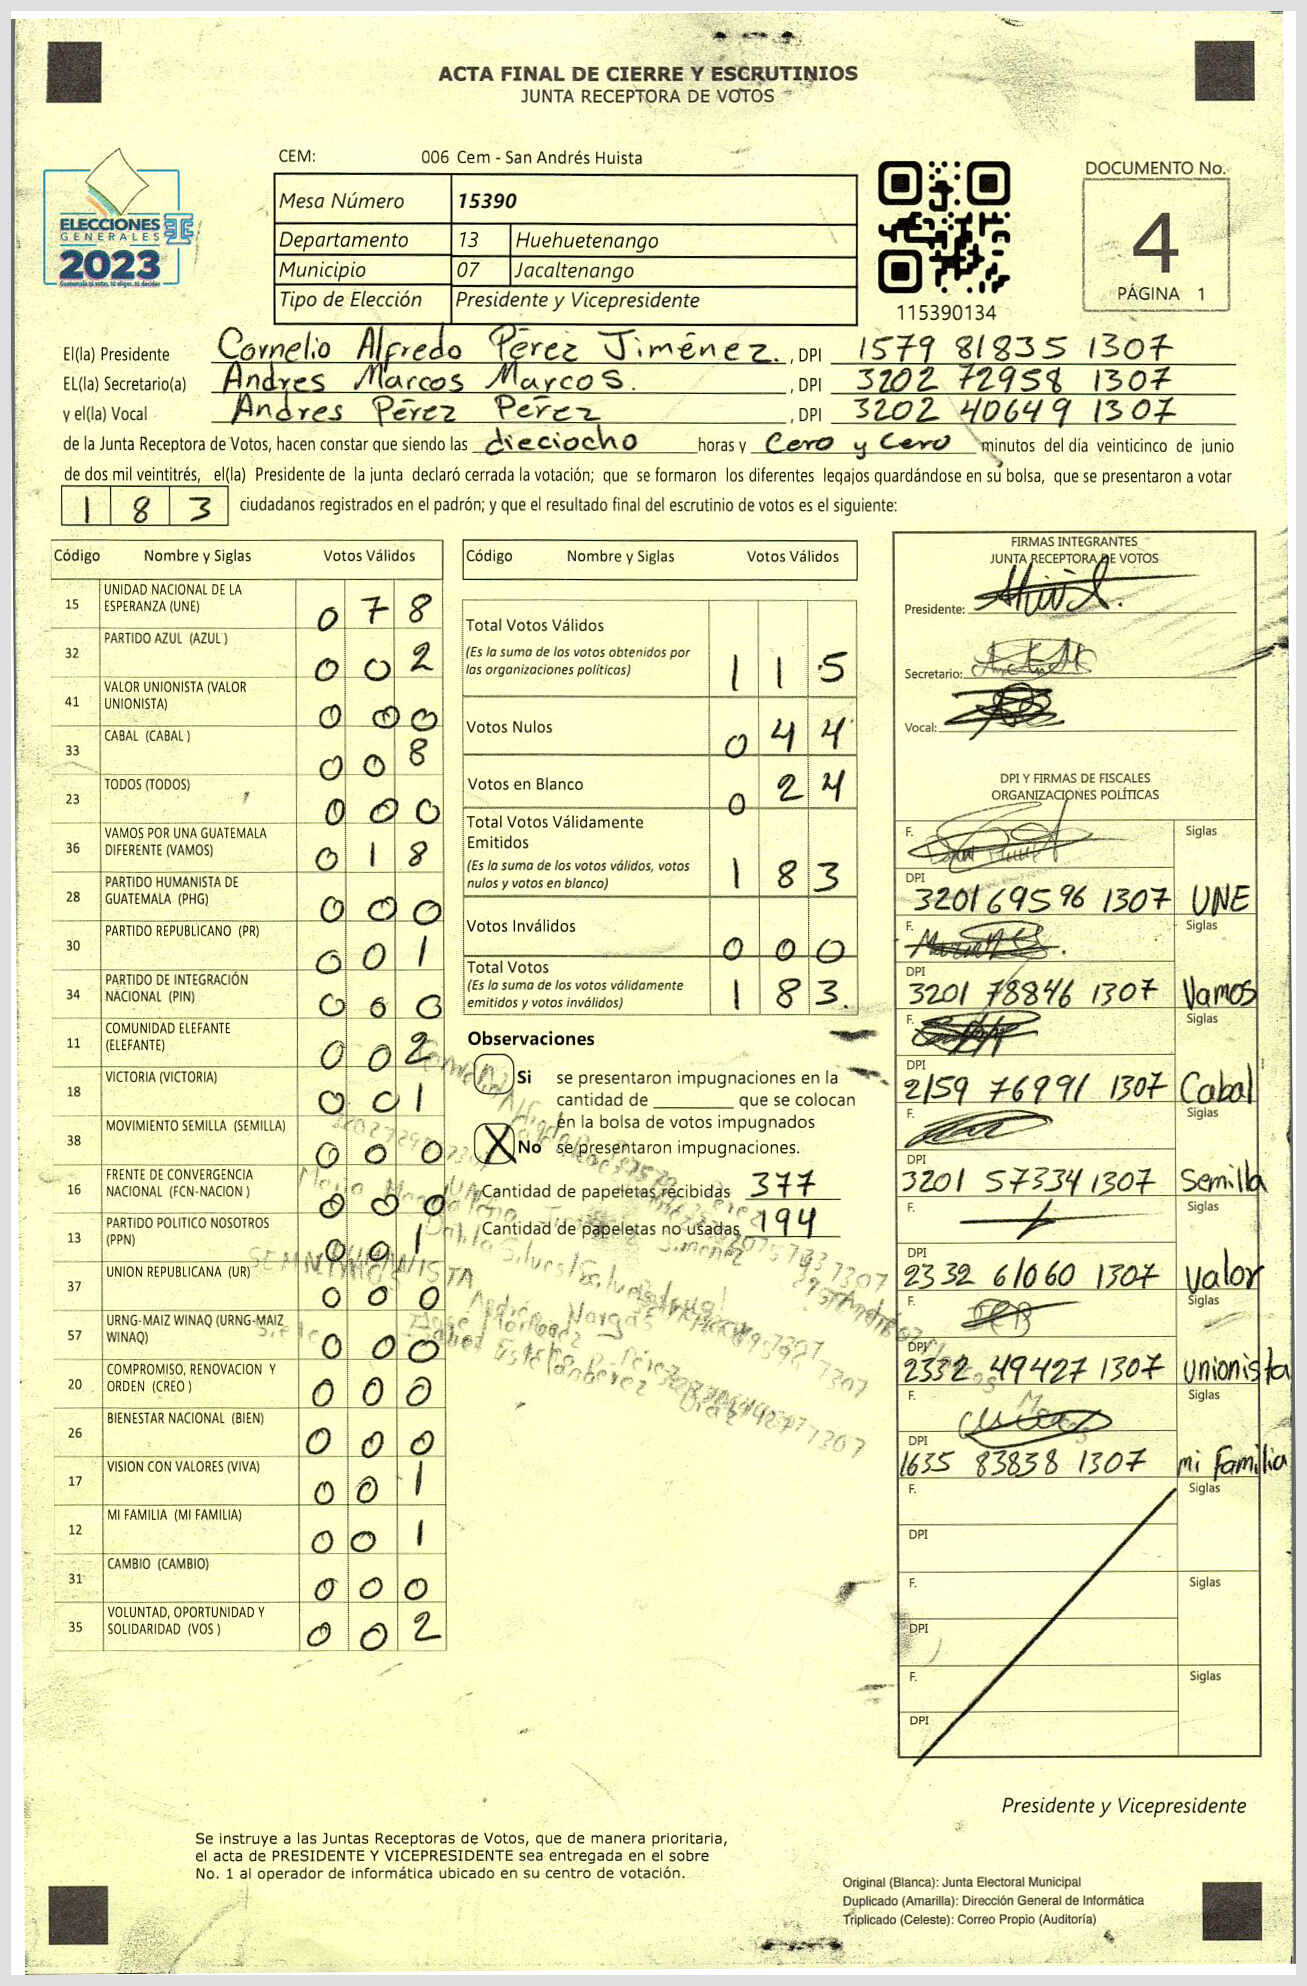 ACTA FINAL DE CIERRE Y ESCRUTINIOS
JUNTA RECEPTORA DE VOTOS
CEM: 006 Cem - San Andrés Huista
ELECCIONES
GENERALES
2023
Mesa Número 15390
Departamento 13 Huehuetenango
Municipio 07 Jacaltenango
Tipo de Elección Presidente y Vicepresidente
115390134
DOCUMENTO No.
4
PÁGINA 1
El(la) Presidente Cornelio Alfredo Pérez Jiménez. , DPI 1579 81835 1307
EL(la) Secretario(a) Andres Marcos Marcos. , DPI 3202 72958 1307
y el(la) Vocal Andres Pérez Pérez , DPI 3202 40649 1307
de la Junta Receptora de Votos, hacen constar que siendo las dieciocho horas y Cero y Cero minutos del día veinticinco de junio
de dos mil veintitrés, el(la) Presidente de la junta declaró cerrada la votación; que se formaron los diferentes legajos guardándose en su bolsa, que se presentaron a votar
183 ciudadanos registrados en el padrón; y que el resultado final del escrutinio de votos es el siguiente:
Código Nombre y Siglas Votos Válidos
15 UNIDAD NACIONAL DE LA ESPERANZA (UNE) 078
32 PARTIDO AZUL (AZUL ) 002
41 VALOR UNIONISTA (VALOR UNIONISTA) 000
33 CABAL (CABAL ) 008
23 TODOS (TODOS) 000
36 VAMOS POR UNA GUATEMALA DIFERENTE (VAMOS) 018
28 PARTIDO HUMANISTA DE GUATEMALA (PHG) 000
30 PARTIDO REPUBLICANO (PR) 001
34 PARTIDO DE INTEGRACIÓN NACIONAL (PIN) 000
11 COMUNIDAD ELEFANTE (ELEFANTE) 002
18 VICTORIA (VICTORIA) 001
38 MOVIMIENTO SEMILLA (SEMILLA) 000
16 FRENTE DE CONVERGENCIA NACIONAL (FCN-NACION ) 000
13 PARTIDO POLITICO NOSOTROS (PPN) 001
37 UNION REPUBLICANA (UR) 000
57 URNG-MAIZ WINAQ (URNG-MAIZ WINAQ) 000
20 COMPROMISO, RENOVACION Y ORDEN (CREO ) 000
26 BIENESTAR NACIONAL (BIEN) 000
17 VISION CON VALORES (VIVA) 001
12 MI FAMILIA (MI FAMILIA) 001
31 CAMBIO (CAMBIO) 000
35 VOLUNTAD, OPORTUNIDAD Y SOLIDARIDAD (VOS ) 002
Código Nombre y Siglas Votos Válidos
Total Votos Válidos 115
(Es la suma de los votos obtenidos por
las organizaciones políticas)
Votos Nulos 044
Votos en Blanco 024
Total Votos Válidamente
Emitidos 183
(Es la suma de los votos válidos, votos
nulos y votos en blanco)
Votos Inválidos 000
Total Votos 183.
(Es la suma de los votos válidamente
emitidos y votos inválidos)
Observaciones
Si se presentaron impugnaciones en la
cantidad de ________ que se colocan
en la bolsa de votos impugnados
X No se presentaron impugnaciones.
Cantidad de papeletas recibidas 377
Cantidad de papeletas no usadas 194
FIRMAS INTEGRANTES
JUNTA RECEPTORA DE VOTOS
Presidente:
Secretario:
Vocal:
DPI Y FIRMAS DE FISCALES
ORGANIZACIONES POLÍTICAS
F. Siglas
DPI 3201 69596 1307 UNE
F. Siglas
DPI 3201 78846 1307 Vamos
F. Siglas
DPI 2159 76991 1307 Cabal
F. Siglas
DPI 3201 57334 1307 Semilla
F. Siglas
DPI 2332 61060 1307 Valor
F. Siglas
DPI 2332 49427 1307 unionista
F. Siglas
DPI 1635 83838 1307 mi Familia
F. Siglas
DPI
F. Siglas
DPI
F. Siglas
DPI
Presidente y Vicepresidente
Se instruye a las Juntas Receptoras de Votos, que de manera prioritaria,
el acta de PRESIDENTE Y VICEPRESIDENTE sea entregada en el sobre
No. 1 al operador de informática ubicado en su centro de votación.
Original (Blanca): Junta Electoral Municipal
Duplicado (Amarilla): Dirección General de Informática
Triplicado (Celeste): Correo Propio (Auditoría)